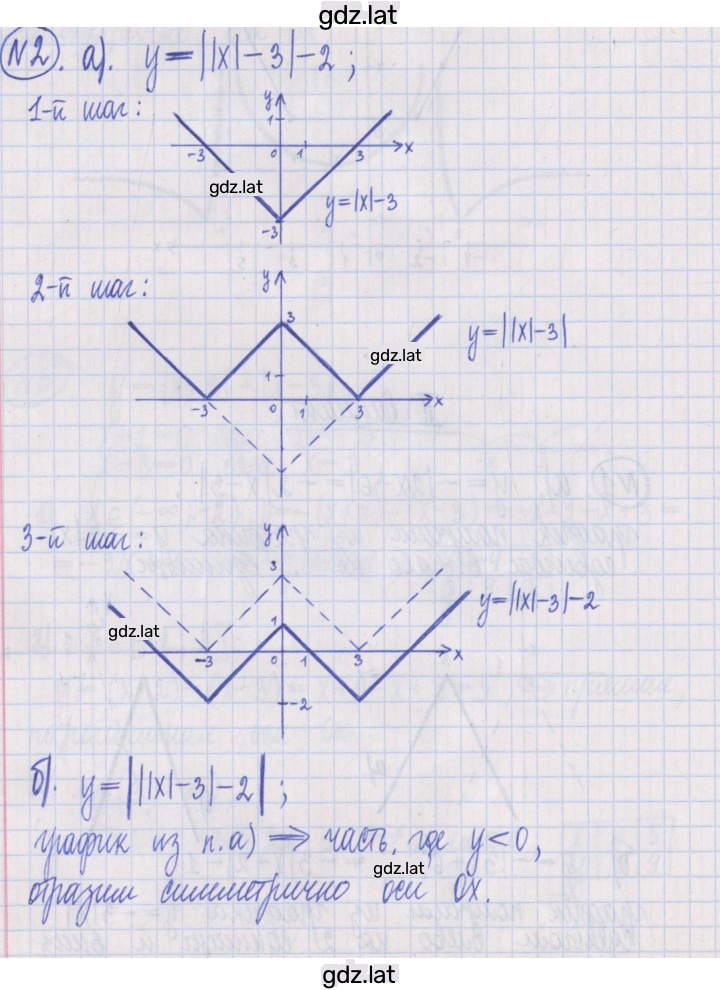 gdz.lat
№2. а). y=||x|-3|-2;
1-й шаг:
y
1
-3 0 1 3 x
gdz.lat
y=|x|-3
-3
2-й шаг:
y
3
gdz.lat
y=||x|-3|
1
-3 0 1 3 x
3-й шаг:
y
3
y=||x|-3|-2
gdz.lat
1
-3 0 1 3 x
-2
б). y=|||x|-3|-2|;
график из п.а) ⇒ часть, где y<0,
gdz.lat
отразим симметрично оси Ox.
gdz.lat